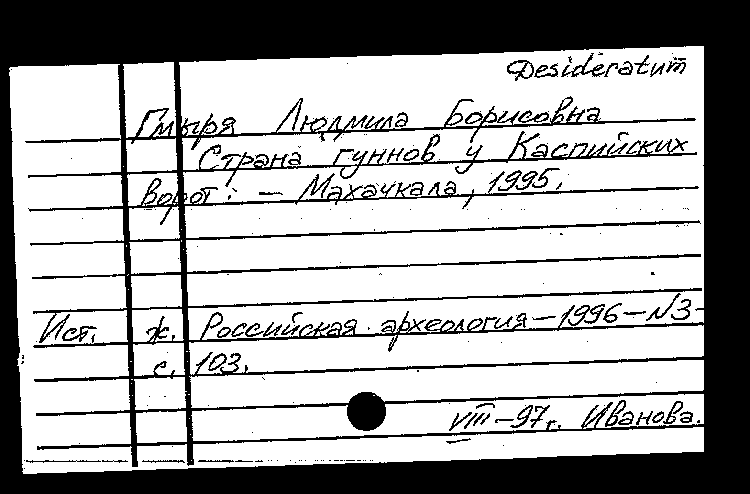 Desideratum
Гмыря Людмила Борисовна
Страна гуннов у Каспийских
ворот: — Махачкала, 1995.
Ист. ж. Российская археология — 1996 — N3-
с. 103.
VIII — 97г. Иванова.